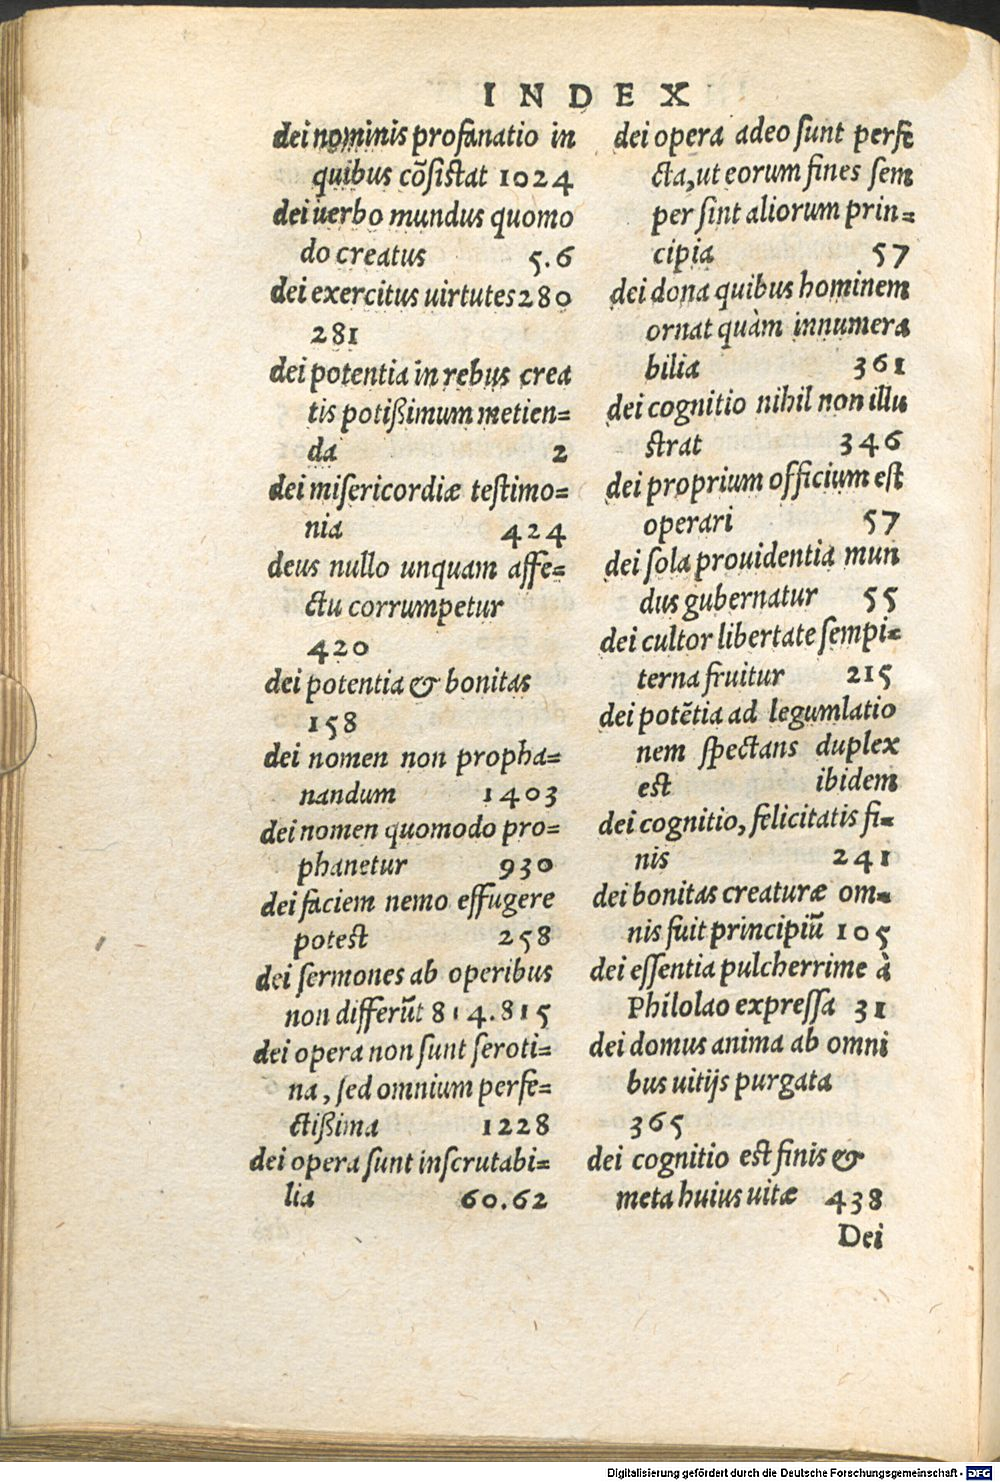 INDEX
dei nominis profanatio in
quibus cõsistat 1024
dei uerbo mundus quomo
do creatus 5.6
dei exercitus uirtutes 280
281
dei potentia in rebus crea
tis potißimum metien=
da 2
dei misericordiæ testimo=
nia 424
deus nullo unquam affe=
ctu corrumpetur
420
dei potentia & bonitas
158
dei nomen non propha=
nandum 1403
dei nomen quomodo pro=
phanetur 930
dei faciem nemo effugere
potest 258
dei sermones ab operibus
non differũt 814.815
dei opera non sunt seroti=
na, sed omnium perfe=
ctißima 1228
dei opera sunt inscrutabi=
lia 60.62
dei opera adeo sunt perfe
cta, ut eorum fines sem
per sint aliorum prin=
cipia 57
dei dona quibus hominem
ornat quàm innumera
bilia 361
dei cognitio nihil non illu
strat 346
dei proprium officium est
operari 57
dei sola prouidentia mun
dus gubernatur 55
dei cultor libertate sempi=
terna fruitur 215
dei potẽtia ad legumlatio
nem spectans duplex
est ibidem
dei cognitio, felicitatis fi=
nis 241
dei bonitas creaturæ om=
nis fuit principiũ 105
dei essentia pulcherrime à
Philolao expressa 31
dei domus anima ab omni
bus uitijs purgata
365
dei cognitio est finis &
meta huius uitæ 438
Dei
Digitalisierung gefördert durch die Deutsche Forschungsgemeinschaft - DFG